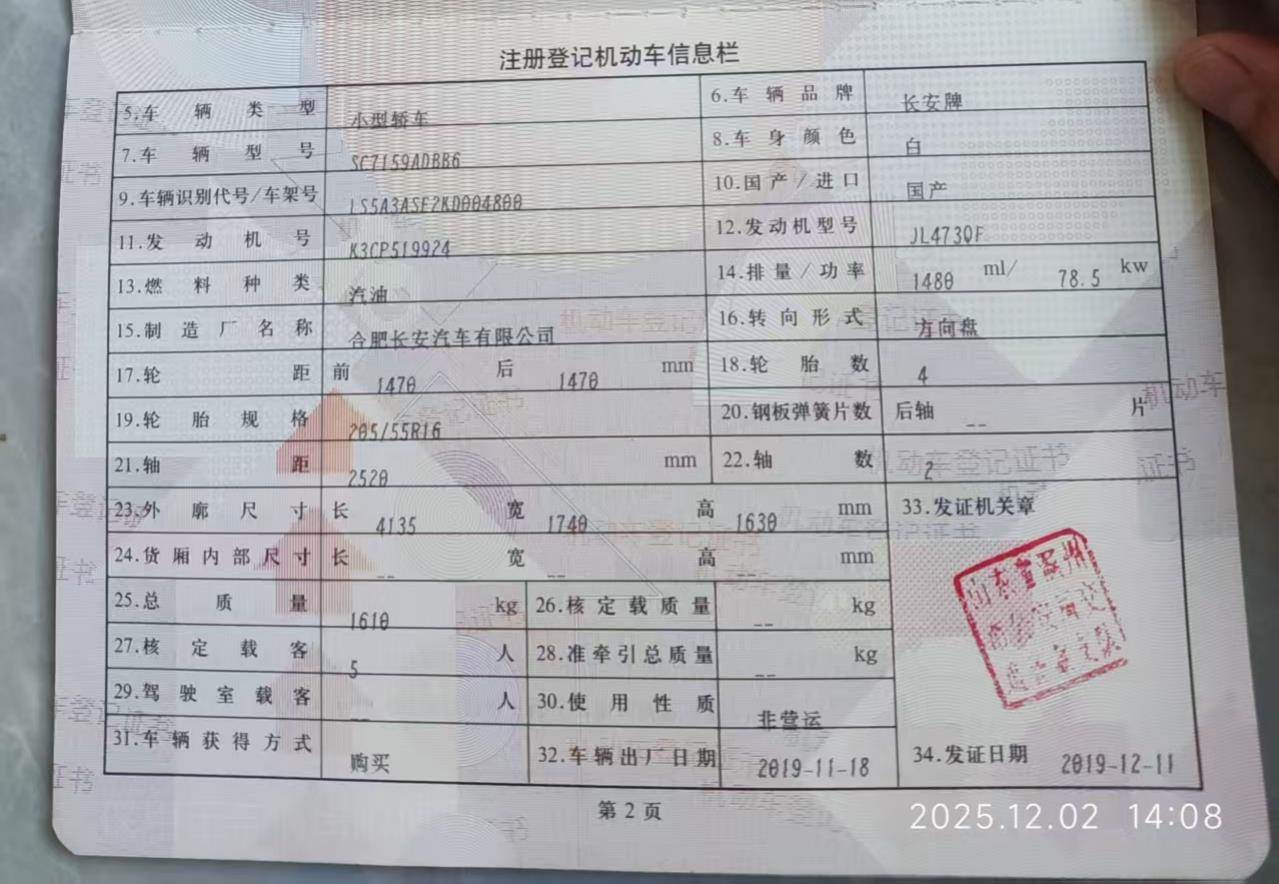 注册登记机动车信息栏
5.车辆类型 小型轿车 6.车辆品牌 长安牌
7.车辆型号 SC7159ADBB6 8.车身颜色 白
9.车辆识别代号/车架号 LS5A3ASE2KD004800 10.国产/进口 国产
11.发动机号 K3CP519924 12.发动机型号 JL473QF
13.燃料种类 汽油 14.排量/功率 1480 ml/ 78.5 kw
15.制造厂名称 合肥长安汽车有限公司 16.转向形式 方向盘
17.轮距 前 1470 后 1470 mm 18.轮胎数 4
19.轮胎规格 205/55R16 20.钢板弹簧片数 后轴 -- 片
21.轴距 2520 mm 22.轴数 2
23.外廓尺寸 长 4135 宽 1740 高 1630 mm 33.发证机关章
24.货厢内部尺寸 长 -- 宽 -- 高 -- mm
25.总质量 1610 kg 26.核定载质量 -- kg
27.核定载客 5 人 28.准牵引总质量 -- kg
29.驾驶室载客 -- 人 30.使用性质 非营运
31.车辆获得方式 购买 32.车辆出厂日期 2019-11-18 34.发证日期 2019-12-11
第2页
2025.12.02 14:08